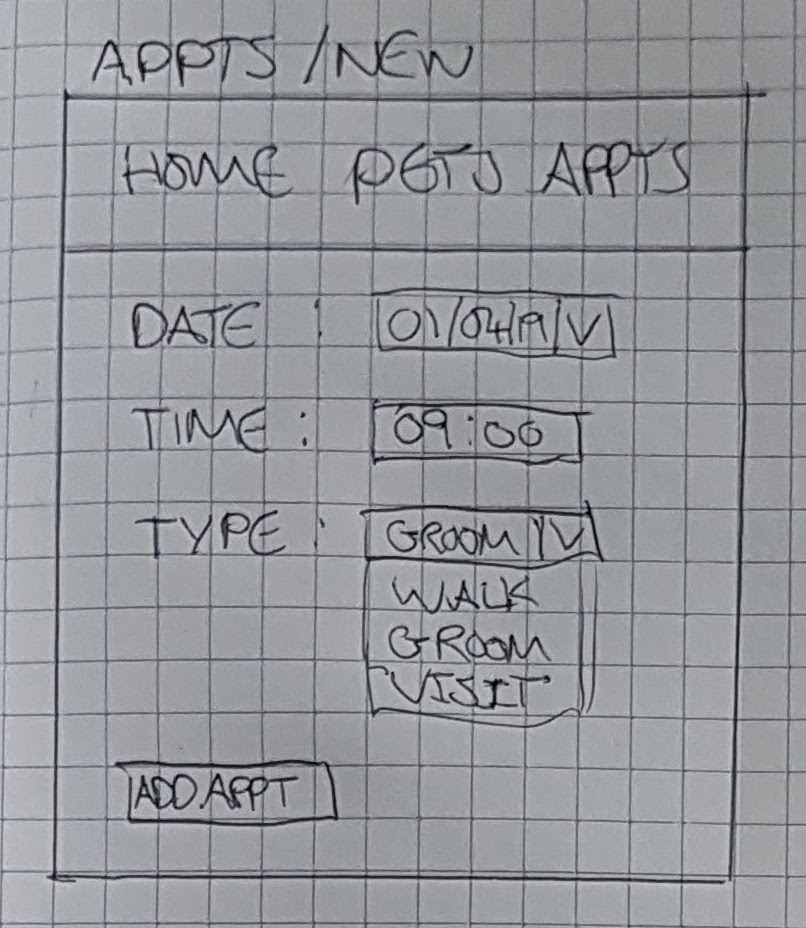 APPTS /NEW
HOME PETS APPTS
DATE : 01/04/19 V
TIME : 09:00
TYPE : GROOM V
WALK
GROOM
VISIT
ADD APPT